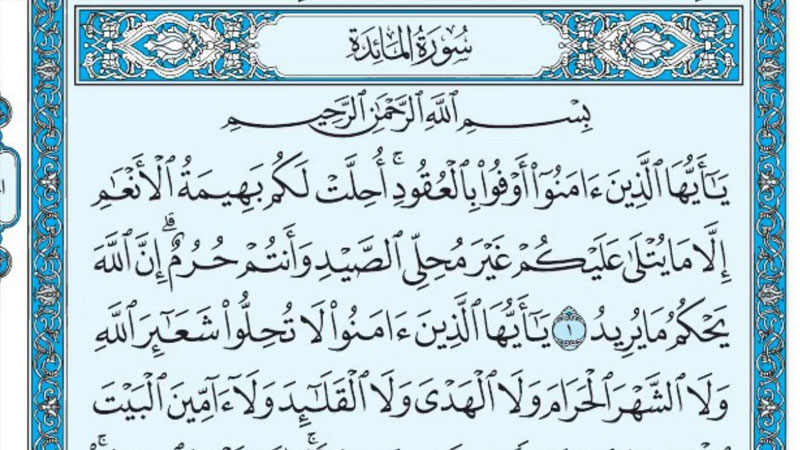 سُورَةُ المَائِدَةِ
بِسْمِ ٱللَّهِ ٱلرَّحْمَٰنِ ٱلرَّحِيمِ
يَٰٓأَيُّهَا ٱلَّذِينَ ءَامَنُوٓا۟ أَوْفُوا۟ بِٱلْعُقُودِ ۚ أُحِلَّتْ لَكُم بَهِيمَةُ ٱلْأَنْعَٰمِ
إِلَّا مَا يُتْلَىٰ عَلَيْكُمْ غَيْرَ مُحِلِّى ٱلصَّيْدِ وَأَنتُمْ حُرُمٌ ۗ إِنَّ ٱللَّهَ
يَحْكُمُ مَا يُرِيدُ ١ يَٰٓأَيُّهَا ٱلَّذِينَ ءَامَنُوا۟ لَا تُحِلُّوا۟ شَعَٰٓئِرَ ٱللَّهِ
وَلَا ٱلشَّهْرَ ٱلْحَرَامَ وَلَا ٱلْهَدْىَ وَلَا ٱلْقَلَٰٓئِدَ وَلَآ ءَآمِّينَ ٱلْبَيْتَ